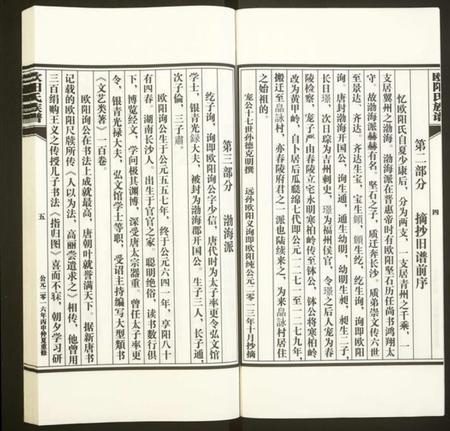 欧阳氏族谱
四
第二部分　摘抄旧谱前序
忆欧阳氏自夏少康后，分为两支，一支居青州之千乘，一
支居冀州之渤海。渤海派在晋惠帝时有欧阳坚石历任尚书鸿翔太
守，故渤海派赫赫有名。坚石之子，质迁奔长沙，质弟崇文传六世
至景达，齐达。齐达生宝，宝生頠，頠生纥，纥生询，询即欧阳
询，唐封渤海开国公，询生通，通生幼明，幼明生昶，昶生二子，
长曰璟，次曰琮为吉州刺史，璟为福州侯官，令璟之后人宠为春
陵检察，宠子严由春陵立宅永明寒柏岭至钵公，钵公将寒柏岭
改为黄甲岭，自卜居后瓜瓞绵七代由公元一二七一至一二七九年，
搬迁至品詠村，亦春陵府君之一派也陆续来之，为来品詠村居住
之始祖的。
宽公十七世孙德克明撰　远孙欧阳又询即欧阳纯公元二〇一三年十月抄摘
第三部分　渤海派
纥子询，询即欧阳询公字少信，唐代时为太子率更令弘文馆
学士，银青光禄大夫，被封为渤海郡开国公。生子三人，长子通，
次子伦，三子肃。
欧阳询公生于公元五五七年，终于公元六四一年，享阳八十
有四春。湖南长沙人，出生于官宦之家，聪明绝俗，读书数行俱
下，博览经文，学问极其渊博，深受唐太宗器重，曾任太子率更
令，银青光禄大夫，弘文馆学士等职，受诏主持编写大型類书
《文艺类著》一百卷。
欧阳询公在书法上成就最高，唐朝叶就誉满天下。据新唐书
记载的欧阳尺牍所传《人以为法，高丽尝遣求之》相传，他曾用
三百绢购王义之传授儿子书法《指归图》喜而不寐，朝夕学习研
欧阳氏族谱
五
公元二零一六年丙申仲夏重修